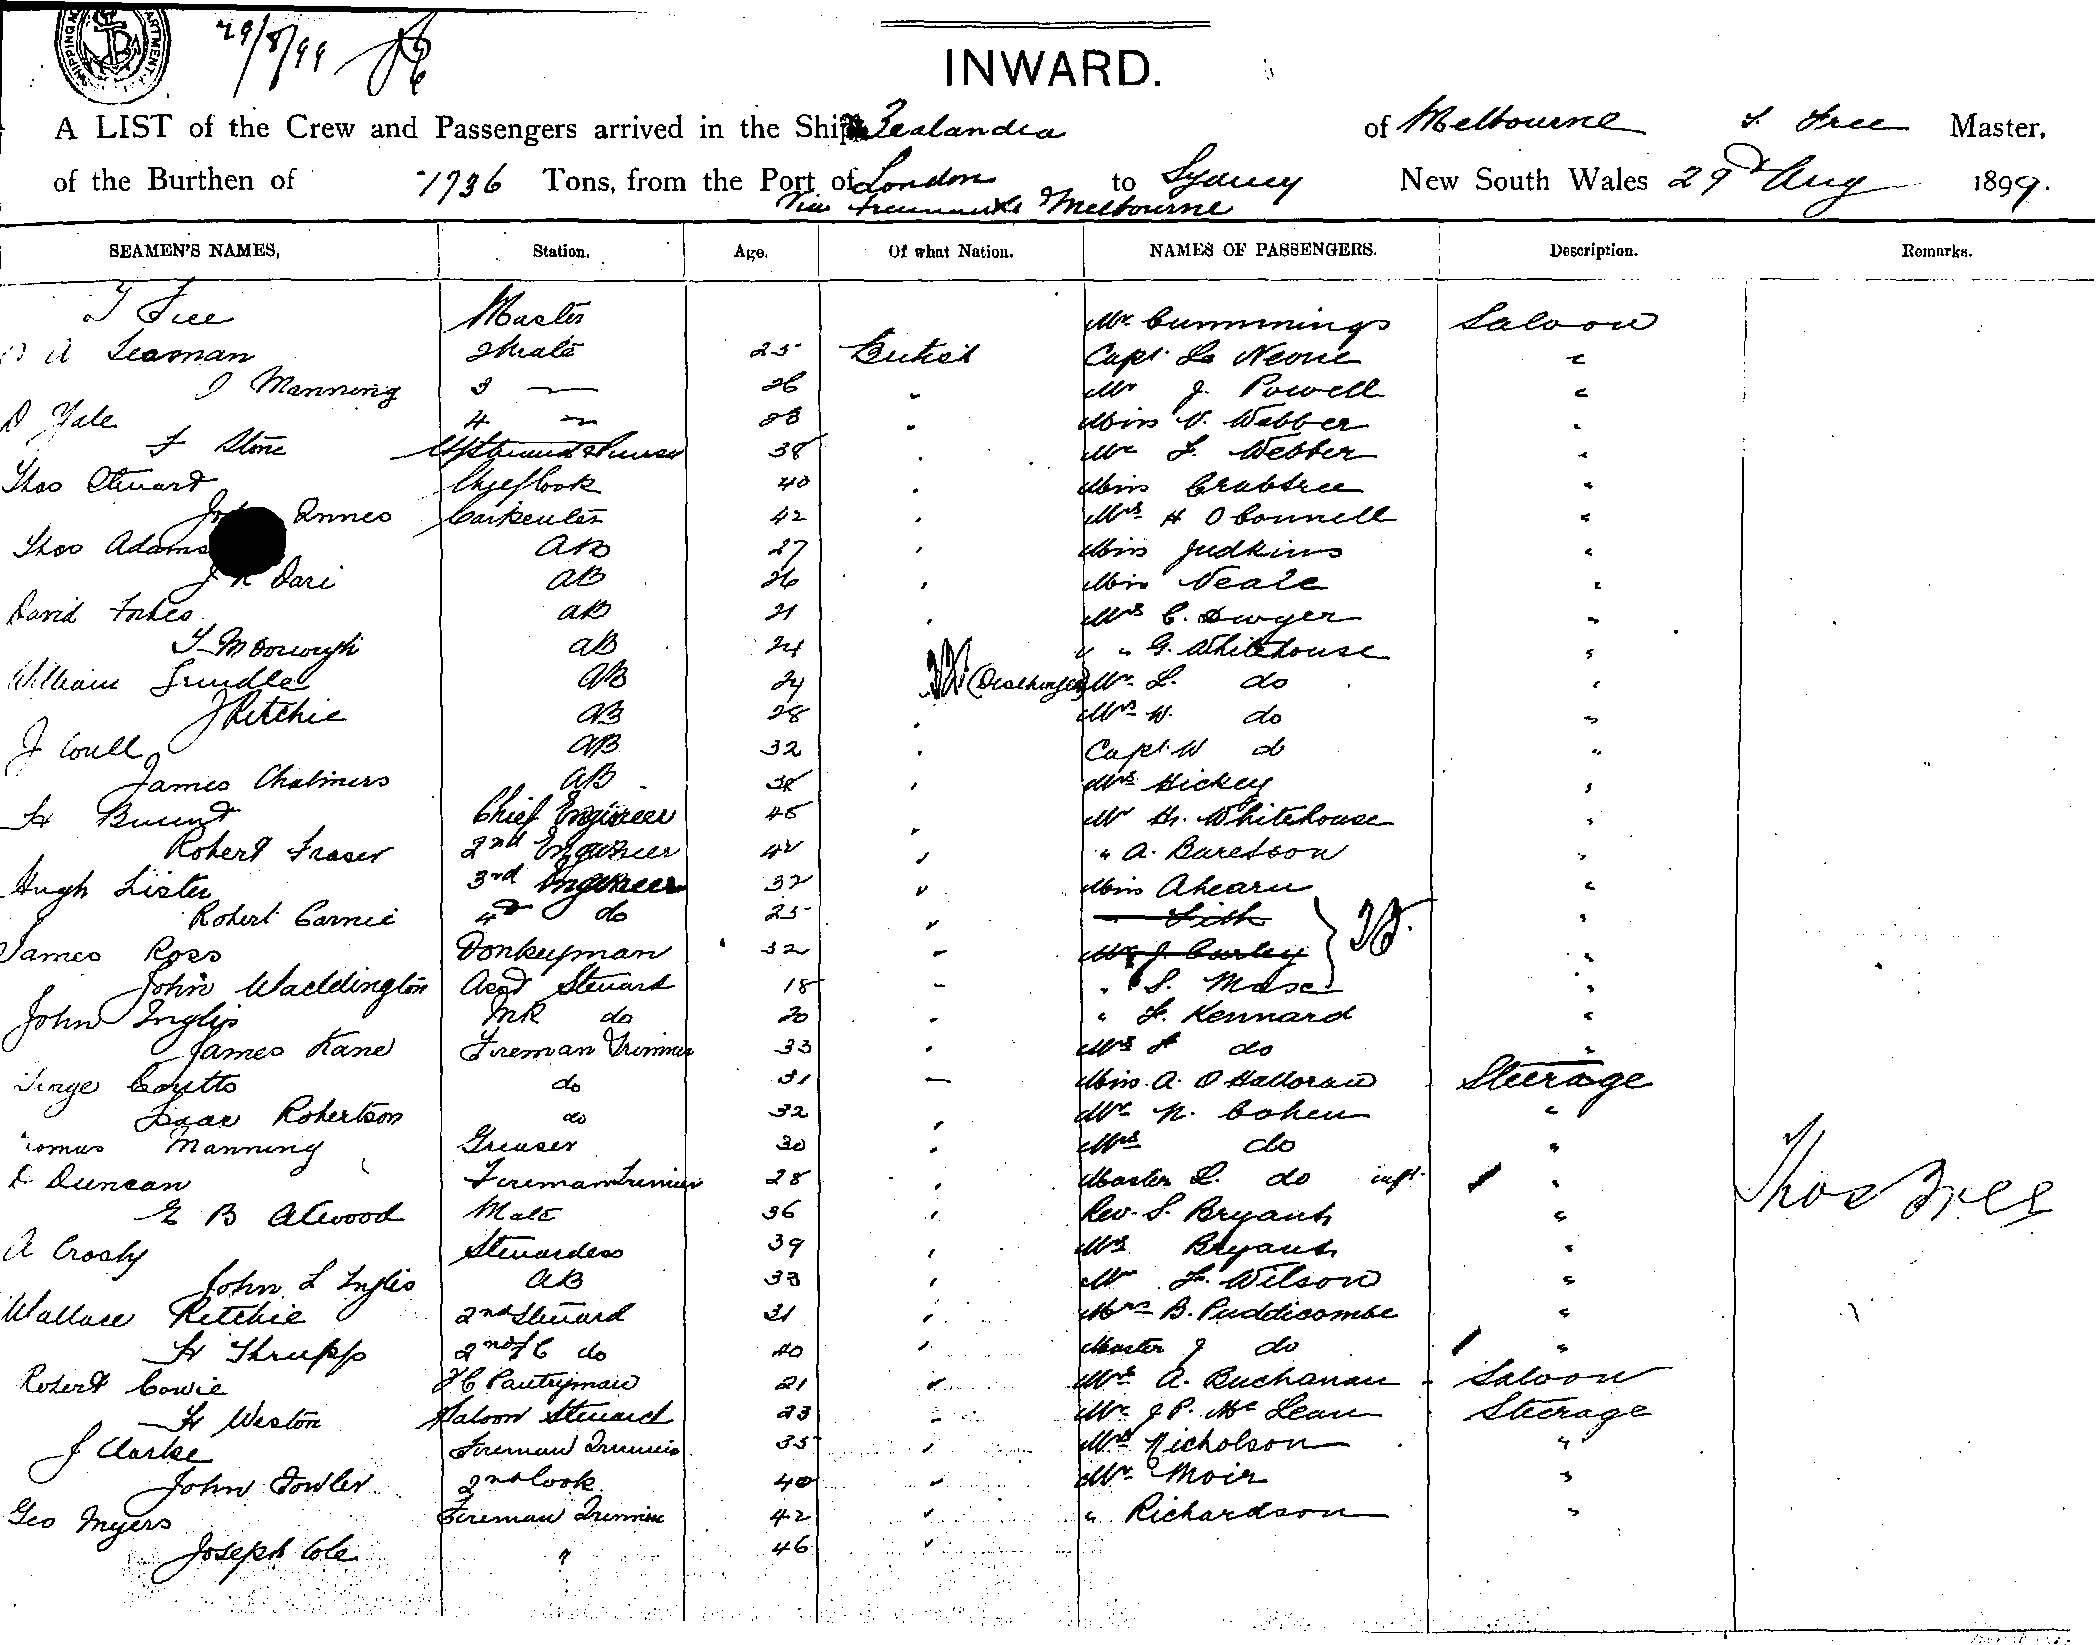 29/8/99
INWARD.
A LIST of the Crew and Passengers arrived in the Ship Zealandia of Melbourne T. Free Master,
of the Burthen of 1736 Tons, from the Port of London to Sydney New South Wales 29th Aug 1899.
Via & Melbourne
SEAMEN'S NAMES, Station. Age. Of what Nation. NAMES OF PASSENGERS. Description. Remarks.
T Free Master Mr Cummings Saloon
A Seaman 2 Mate 25 British Capt Le Neone "
J Manning 3 — 26 " Mr J. Powell "
D Yule 4 " " Miss V. Webber "
F Stone 38 " Mr F. Webber "
Thos Stewart Chief Cook 40 " Miss Crabtree "
Innes Carpenter 42 " Mrs H O'Connell "
Thos Adams AB 27 " Miss Judkins "
Dari AB 26 " Miss Neale "
David Forbes AB 21 " Mrs C. Dwyer "
AB 24 " " G. Whitehouse "
William Grindle AB 24 (Discharged) Mr. L. do "
J Ritchie AB 28 " Mrs W. do "
J Coull AB 32 " Capt W do "
James Chalmers AB 38 " Mrs Hickey "
Chief Engineer 45 " Mr Hr. Whitehouse "
Robert Fraser 2nd Engineer 42 " " A. "
Hugh Lister 3rd Engineer 32 " Miss Ahearn "
Robert Carnie 4th do 25 " "
James Ross Donkeyman 32 " Mr J. Curley "
John Waddington Asst Steward 18 " " S. "
John Inglis MR do 20 " " F. Kennard "
James Kane Fireman Trimmer 33 " Mrs F do "
Coutts do 31 " Miss A. O'Halloran Steerage
Isaac Robertson do 32 " Mr N. Cohen "
Thomas Manning Greaser 30 " Mrs do "
D Duncan Fireman Trimmer 28 " Master L. do inft "
E B Atwood Mate 36 " Rev. S. Bryant "
A Crosby Stewardess 39 " Mrs Bryant "
John L Inglis AB 33 " Mr F. Wilson "
Wallace Ritchie 2nd Steward 31 " Mrs B. Puddicombe "
Hr Thrupp 2nd/C do 40 " Master J do "
Robert Cowie FC Pantryman 21 " Mr A. Buchanan Saloon
Hr Weston Saloon Steward 23 " Mr J P. McLean Steerage
J Clarke Fireman Trimmer 35 " Mrs Nicholson "
John Fowler 2nd Cook 40 " Mr Moir "
Geo Myers Fireman Trimmer 42 " " Richardson "
Joseph Cole " 46 "
Thos Free